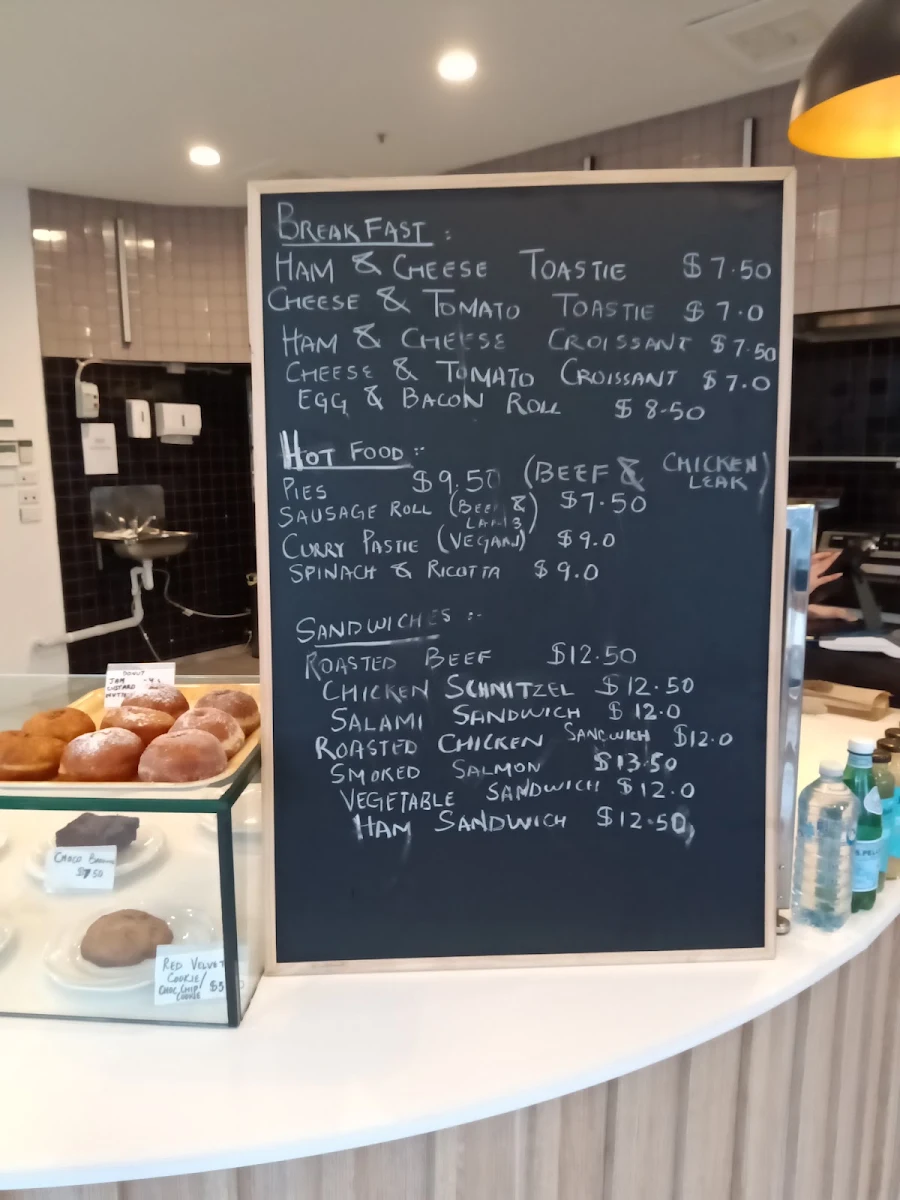 BREAKFAST :
HAM & CHEESE TOASTIE $7.50
CHEESE & TOMATO TOASTIE $7.0
HAM & CHEESE CROISSANT $7.50
CHEESE & TOMATO CROISSANT $7.0
EGG & BACON ROLL $8.50
HOT FOOD :-
PIES $9.50 (BEEF & CHICKEN LEAK)
SAUSAGE ROLL (BEEF & LAMB) $7.50
CURRY PASTIE (VEGAN) $9.0
SPINACH & RICOTTA $9.0
SANDWICHES :-
ROASTED BEEF $12.50
CHICKEN SCHNITZEL $12.50
SALAMI SANDWICH $12.0
ROASTED CHICKEN SANDWICH $12.0
SMOKED SALMON $13.50
VEGETABLE SANDWICH $12.0
HAM SANDWICH $12.50
DONUT
JAM
CUSTARD
CHOCO
$7.50
RED VELVET
COOKIE/
CHOC CHIP
COOKIE
S.PELLE